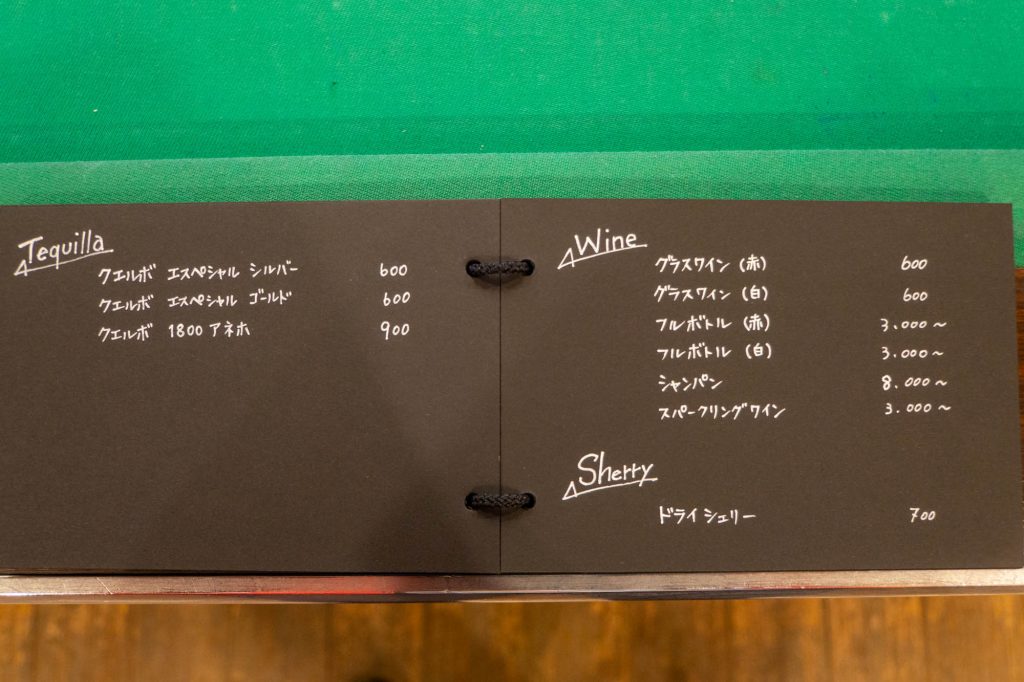 Tequilla
クエルボ エスペシャル シルバー 600
クエルボ エスペシャル ゴールド 600
クエルボ 1800 アネホ 900
Wine
グラスワイン (赤) 600
グラスワイン (白) 600
フルボトル (赤) 3.000~
フルボトル (白) 3.000~
シャンパン 8.000~
スパークリングワイン 3.000~
Sherry
ドライシェリー 700